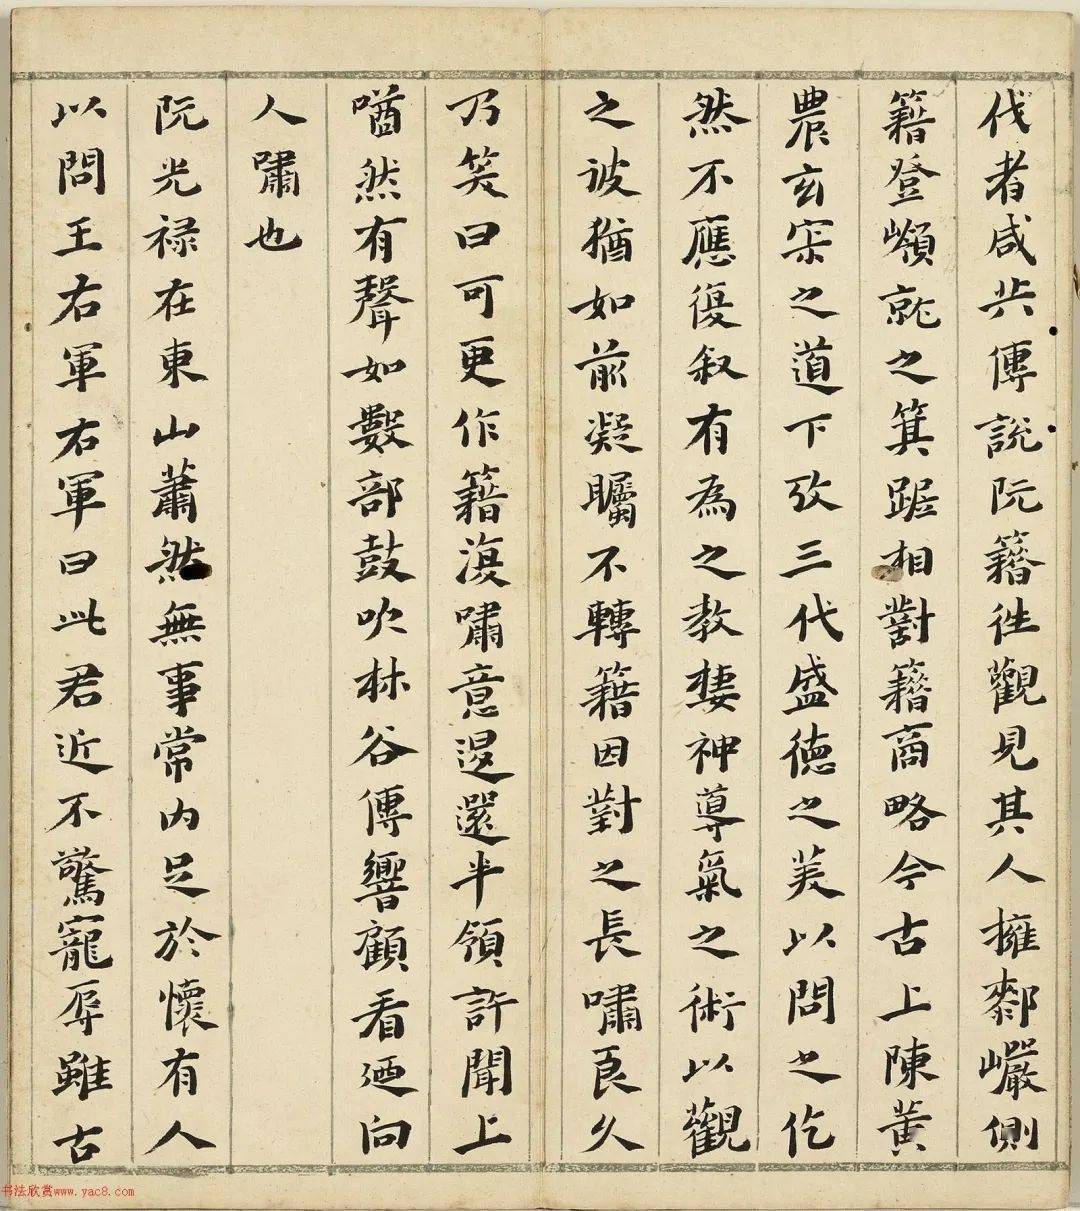 伐者咸共傳說阮籍往觀見其人擁䣛巖側
籍登嶺就之箕踞相對籍商略今古上陳黃
農玄宗之道下攷三代盛德之美以問之仡
然不應復叙有為之教棲神導氣之術以觀
之彼猶如前凝矚不轉籍因對之長嘯良久
乃笑曰可更作籍復嘯意退還半領許聞上
㗜然有聲如數部鼓吹林谷傳響顧看迺向
人嘯也
阮光祿在東山蕭然無事常內足於懷有人
以問王右軍右軍曰此君近不驚寵辱雖古
书法欣赏www.yac8.com